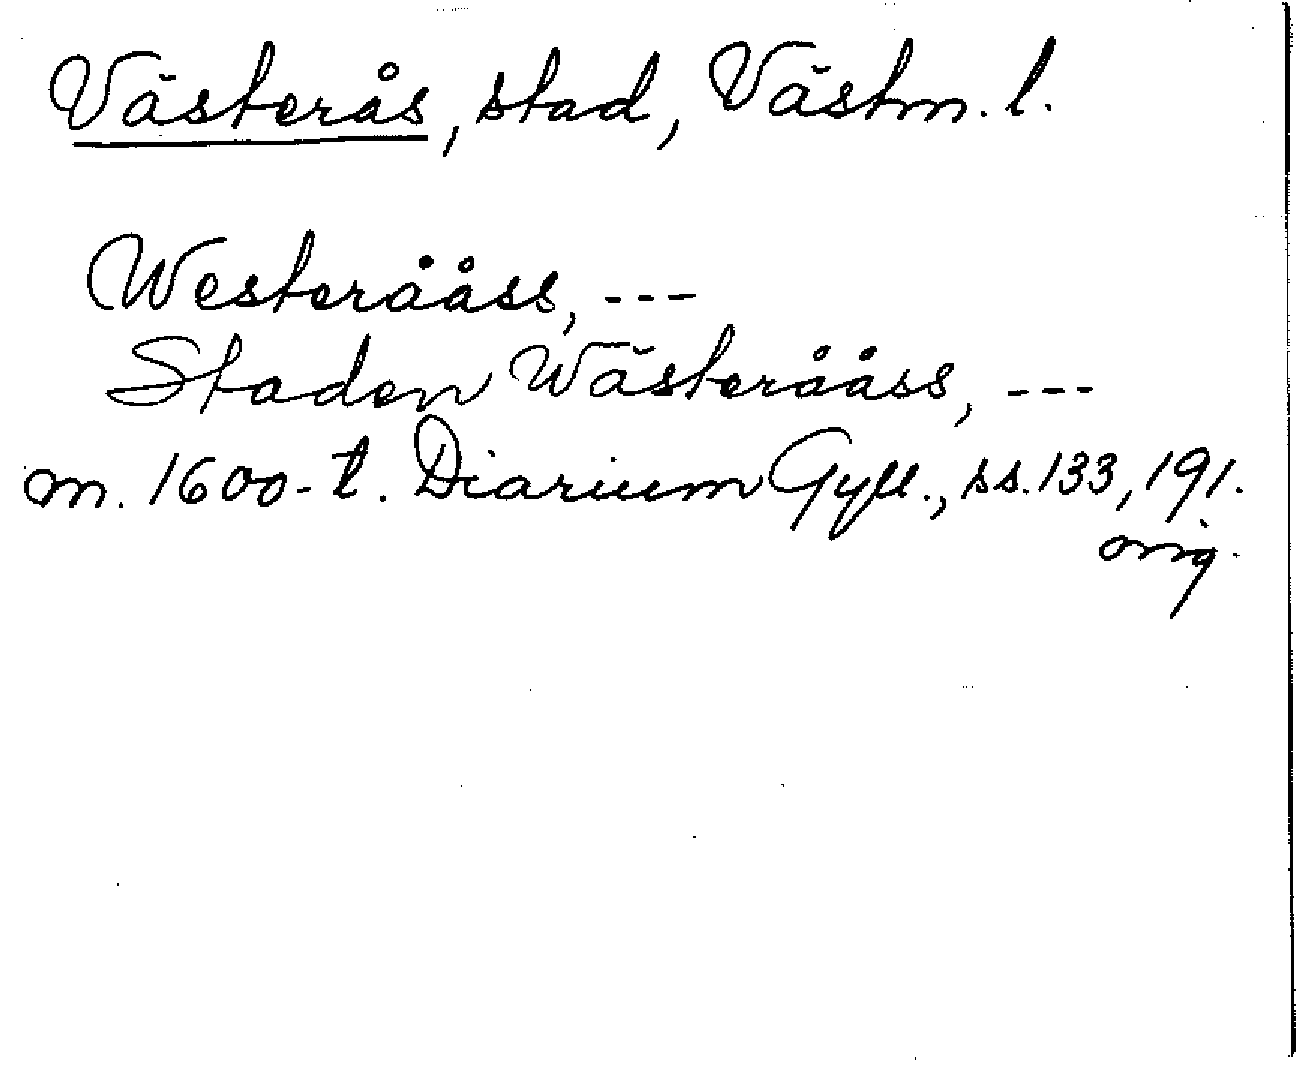 Västerås, stad, Västm. l.
Westerååss, ---
Staden Wästerååss, ---
m. 1600-t. Diarium Gyll., ss. 133, 191.
orig.